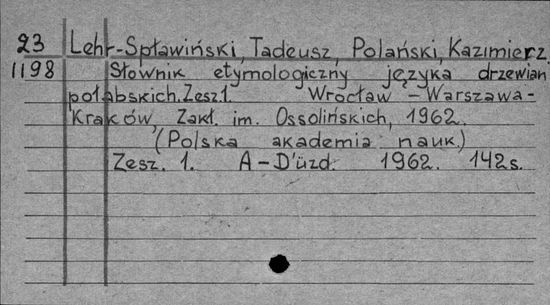 23 Lehr-Spławiński, Tadeusz, Polański, Kazimierz.
1198 Słownik etymologiczny języka drzewian
połabskich. Zesz. 1. Wrocław - Warszawa -
Kraków, Zakł. im. Ossolińskich, 1962.
(Polska akademia nauk.)
Zesz. 1. A - D'üzd. 1962. 142 s.